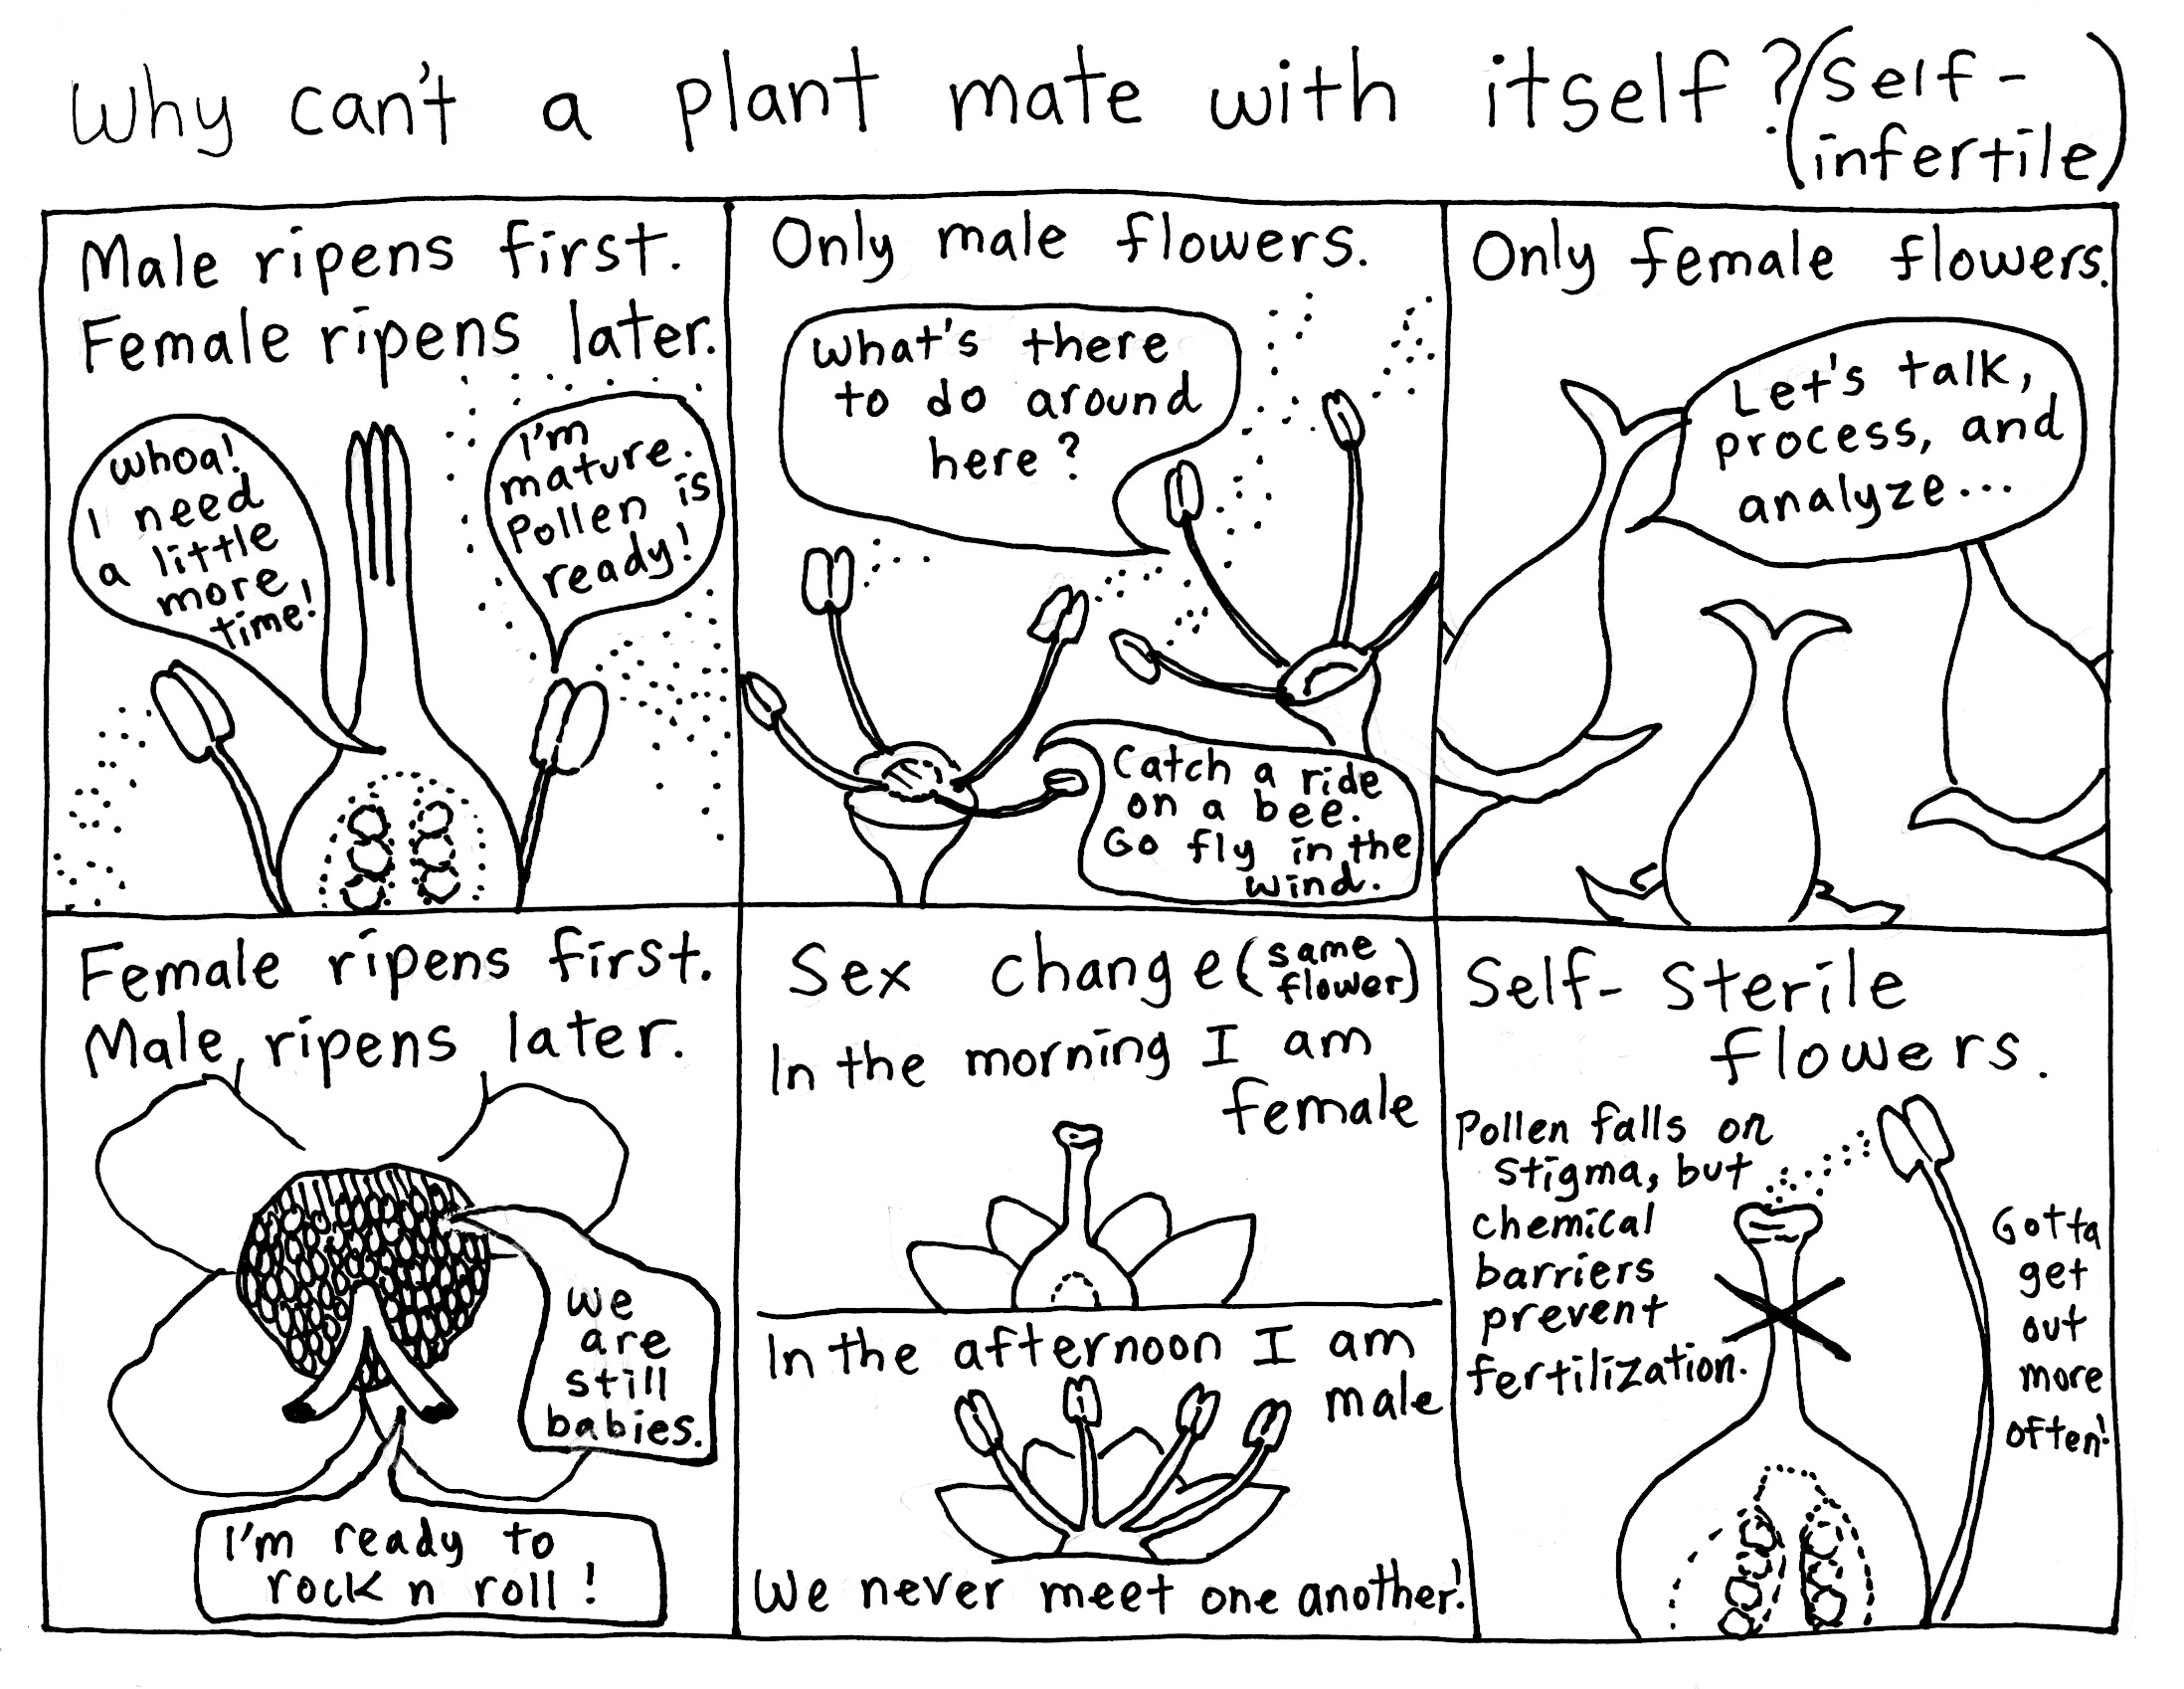 Why can't a plant mate with itself? (self-
infertile)
Male ripens first.
Female ripens later.
Whoa!
I need
a little
more
time!
I'm
mature.
Pollen is
ready!
Only male flowers.
What's there
to do around
here?
Catch a ride
on a bee.
Go fly in the
wind.
Only female flowers.
Let's talk,
process, and
analyze...
Female ripens first.
Male ripens later.
We
are
still
babies.
I'm ready to
rock n roll!
Sex change (same
flower)
In the morning I am
female
In the afternoon I am
male
We never meet one another!
Self-Sterile
flowers.
Pollen falls on
stigma, but
chemical
barriers
prevent
fertilization.
Gotta
get
out
more
often!